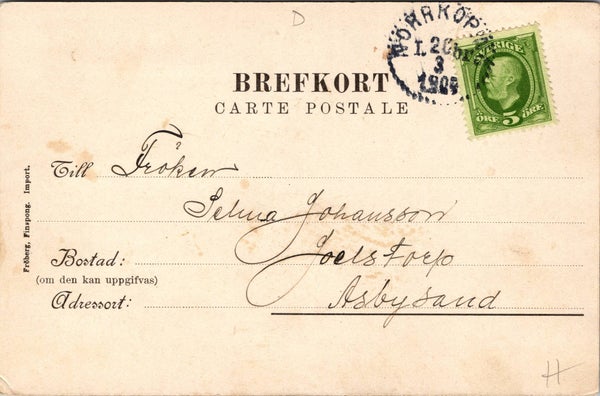 D
NORRKÖPING
1. 20
3
1905
SVERIGE
ÖRE 5 ÖRE
BREFKORT
CARTE POSTALE
Till Fröken
Selma Johansson
Bostad: Joelstorp
(om den kan uppgifvas)
Adressort: Asbysand
Fröberg, Finspong. Import.
H